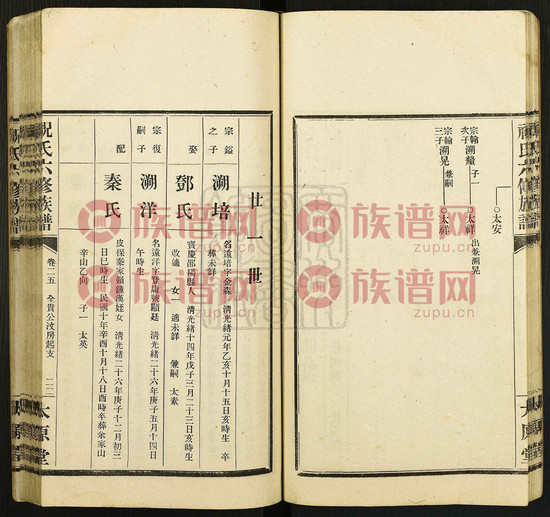 祝氏六修族譜
太原堂
宗翰次子 溯 子一
○太安
○太祥 出兼溯晃
宗翰三子 溯晃 兼嗣
○太祥
廿一世
宗鎰之子 溯培 名遠培字金森 清光緒元年乙亥十月十五日亥時生 卒葬未詳
娶 鄧氏 寶慶邵陽縣人 清光緒十四年戊子三月二十三日亥時生
改適 女一 適未詳 兼嗣 太素
宗復嗣子 溯洋 名遠洋字登 號顯廷 清光緒二十六年庚子五月十四日午時生
配 秦氏 皮保秦家嶺 漢姪女 清光緒二十六年庚子十二月初三日巳時生 民國十年辛酉十月十八日酉時卒葬余家山
辛山乙向 子一 太英
祝氏六修族譜
卷二五 全貴公汶房起支
太原堂
族谱网
www.zupu.cn
族谱网
www.zupu.cn
族谱网
www.zupu.cn
族谱网
www.zupu.cn